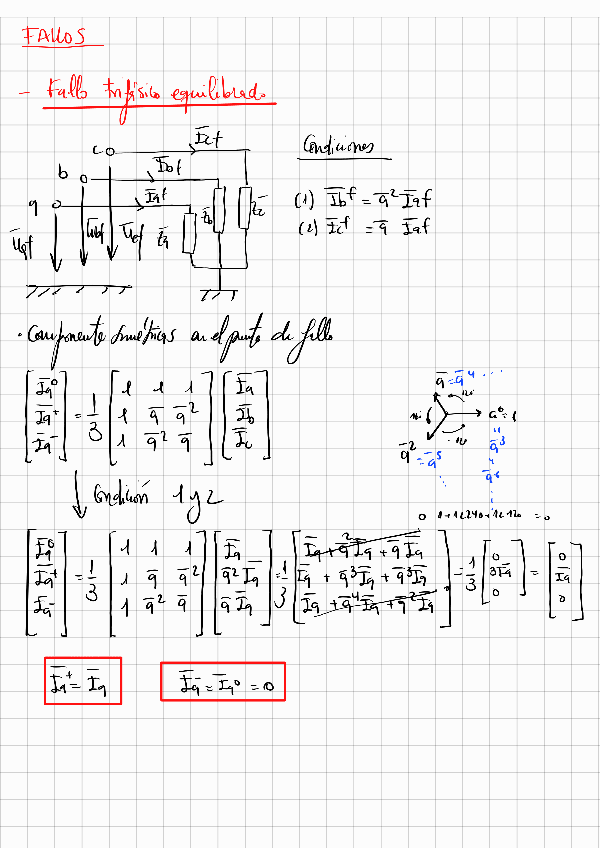 FALLOS
- Fallo trifásico equilibrado
c I̅cf
b I̅bf
a I̅af
U̅af U̅bf U̅cf Z̅a Z̅b Z̅c
Condiciones
(1) I̅bf = a̅² I̅af
(2) I̅cf = a̅ I̅af
· Componente simétricas en el punto de fallo
[I̅a⁰; I̅a⁺; I̅a⁻] = 1/3 [1 1 1; 1 a̅ a̅²; 1 a̅² a̅] [I̅a; I̅b; I̅c]
a̅ = a̅⁴ ...
120
120 a⁰ = 1
a̅² 120 a̅³
= a̅⁵ a̅⁶
↓ Condición 1 y 2
0 1+1∠240+1∠120 = 0
[I̅a⁰; I̅a⁺; I̅a⁻] = 1/3 [1 1 1; 1 a̅ a̅²; 1 a̅² a̅] [I̅a; a̅² I̅a; a̅ I̅a] = 1/3 [I̅a + a̅² I̅a + a̅ I̅a; I̅a + a̅³ I̅a + a̅³ I̅a; I̅a + a̅⁴ I̅a + a̅² I̅a] = 1/3 [0; 3I̅a; 0] = [0; I̅a; 0]
I̅a⁺ = I̅a I̅a⁻ = I̅a⁰ = 0